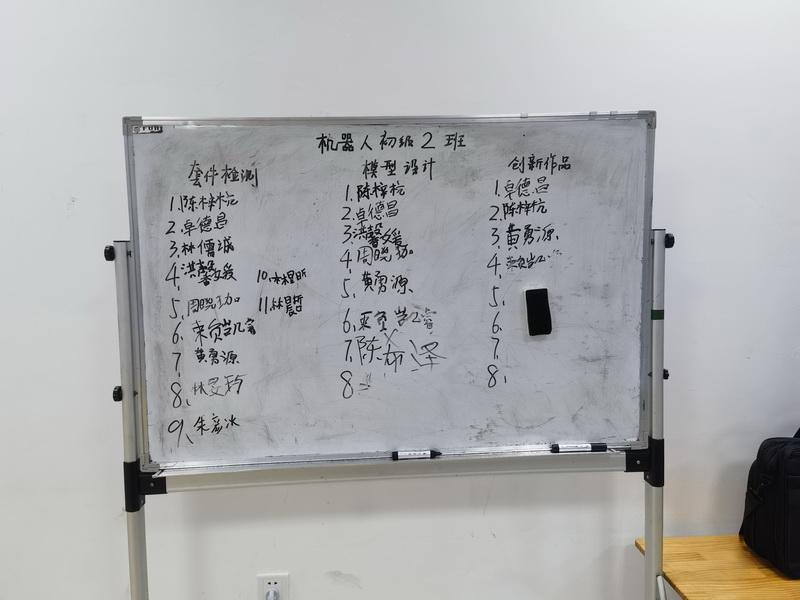 机器人初级2班
套件检测
1.陈梓杭
2.卓德昌
3.林儒诚
4.洪馨媛
5.周晓
6.
7.黄勇源
8.林
9.朱彦冰
10.林程昕
11.林晨哲
模型设计
1.陈梓杭
2.卓德昌
3.洪馨媛
4.周晓
5.黄勇源
6.
7.陈泽
8.
创新作品
1.卓德昌
2.陈梓杭
3.黄勇源
4.
5.
6.
7.
8.